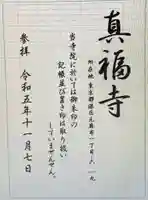 真福寺
所在地 東京都港区元麻布一丁目
当寺院に於いては御朱印の
記帳並び書き印は取り扱い
していません。
参拝 令和五年十一月七日